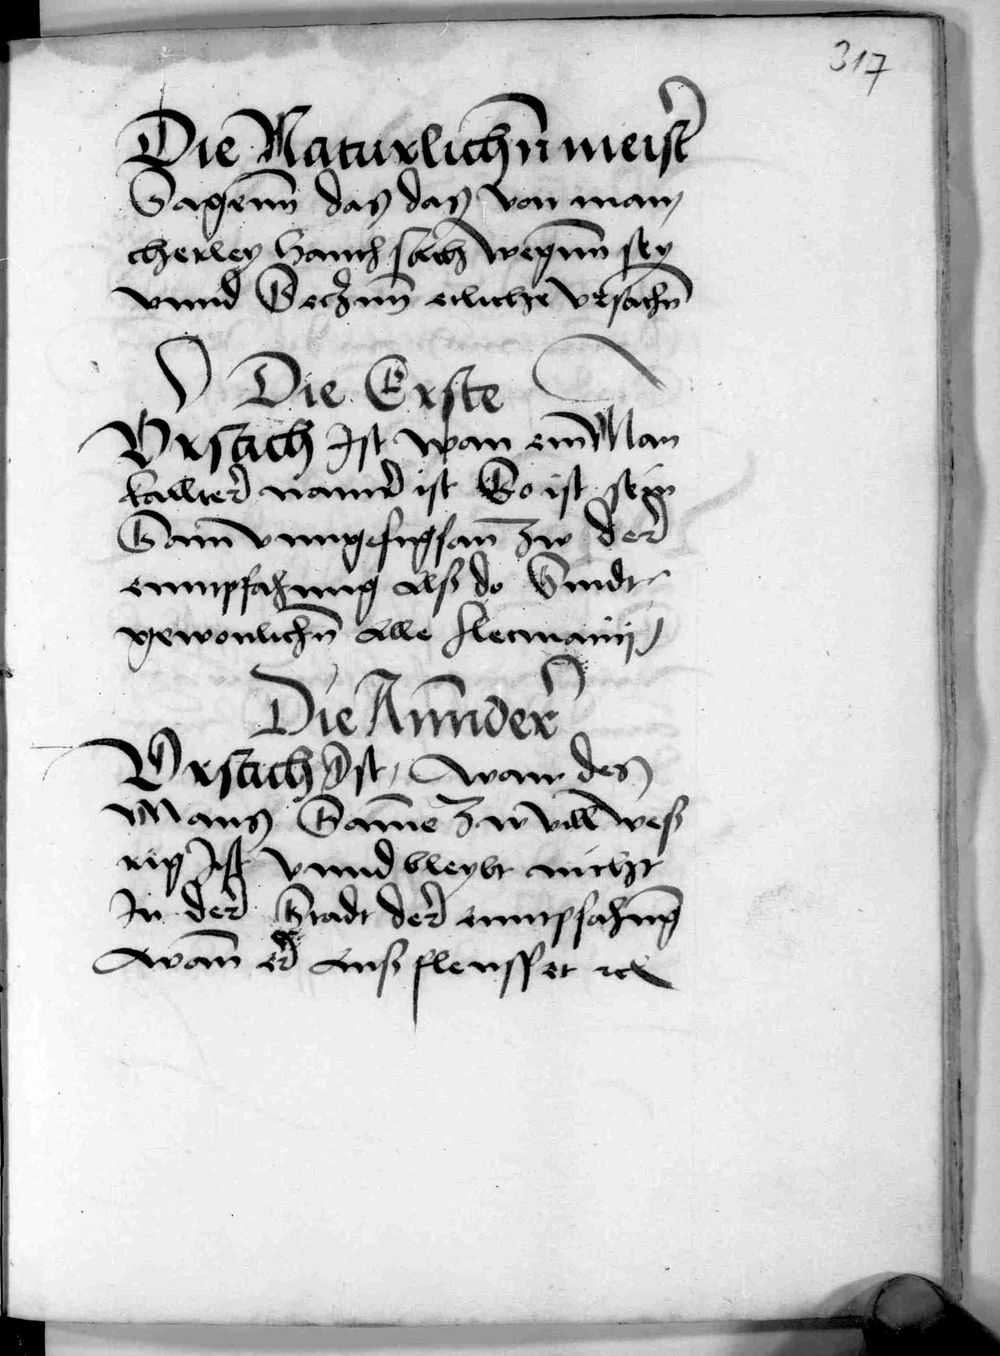 317
Die Naturlichn meist
Sagenn das das von man
cherley hannd sach wegenn sey
vnnd Setzenn etliche vrsachn
Die Erste
Vrsach Ist wan ein Man
kallter natur ist So ist sein
Sam vnngefugsam zw der
enntpfahung Als do Sindt
gewonlichn Alle flecmatij
Die Annder
Vrsach Ist, Wann des
Mans Same zw vill wess
rig Ist vnnd bleybt nicht
In der Stadt der enntpfahung
Wann er Auss fleusset etc